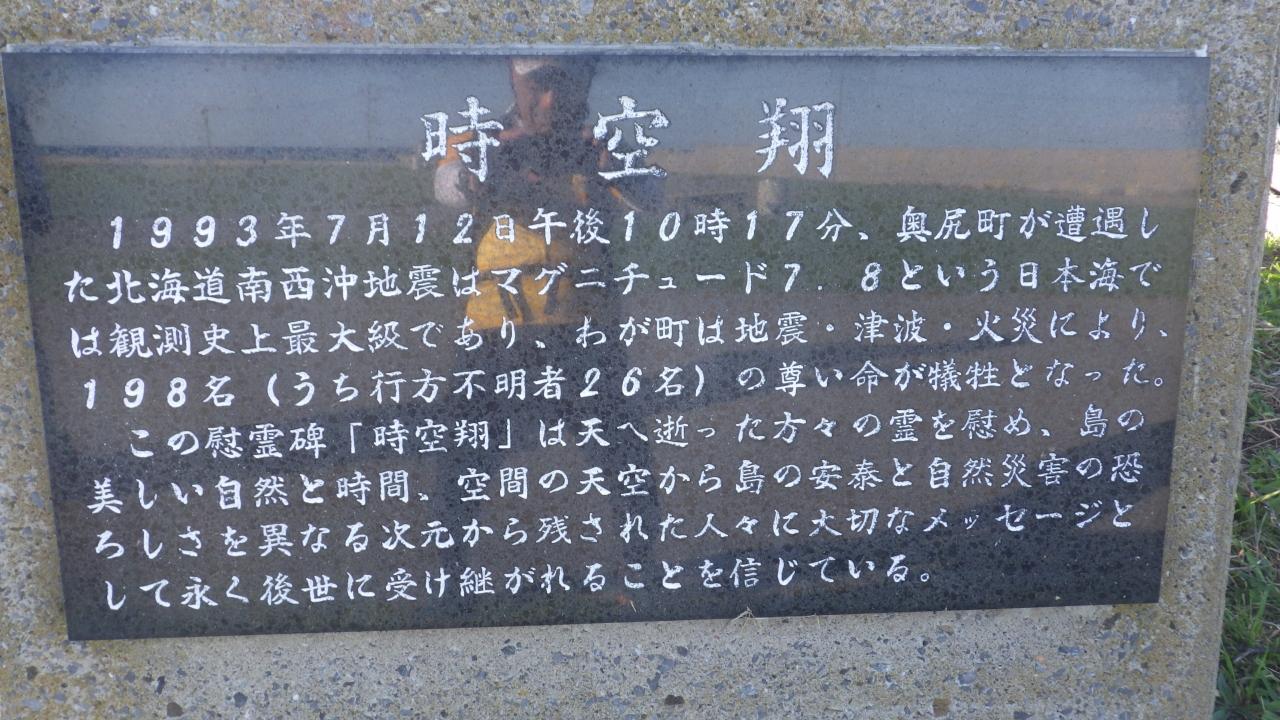 時空翔
1993年7月12日午後10時17分、奥尻町が遭遇し
た北海道南西沖地震はマグニチュード7.8という日本海で
は観測史上最大級であり、わが町は地震・津波・火災により、
198名(うち行方不明者26名)の尊い命が犠牲となった。
この慰霊碑「時空翔」は天へ逝った方々の霊を慰め、島の
美しい自然と時間、空間の天空から島の安泰と自然災害の恐
ろしさを異なる次元から残された人々に大切なメッセージと
して永く後世に受け継がれることを信じている。